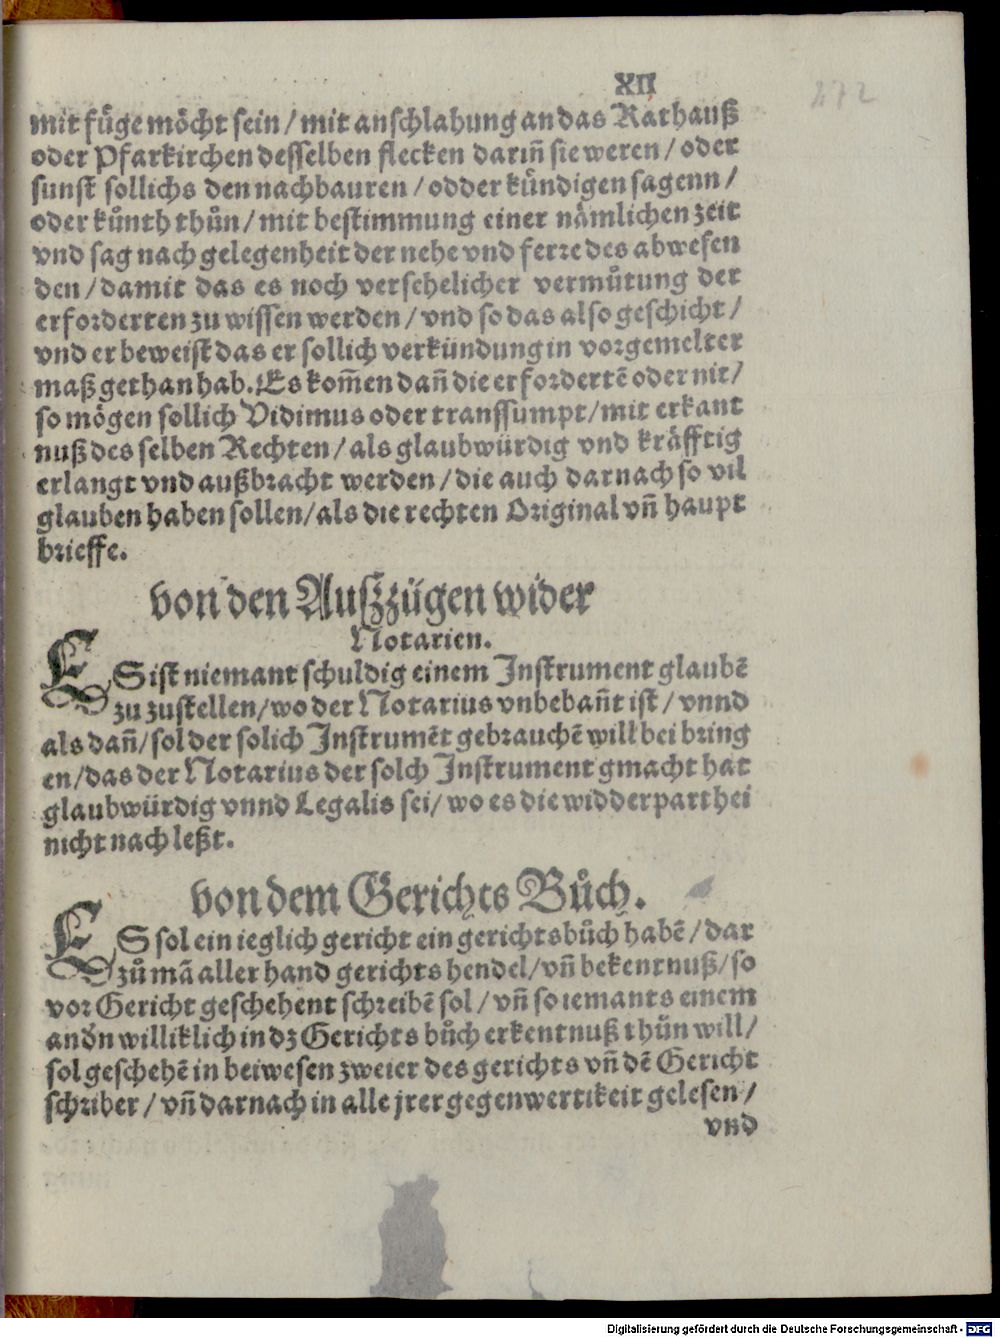 XII
272
mit fůge möcht sein / mit anschlahung an das Rathauß
oder Pfarkirchen desselben flecken dariñ sie weren / oder
sunst sollichs den nachbauren / odder kündigen sagenn /
oder kůnth thůn / mit bestimmung einer nämlichen zeit
vnd sag nach gelegenheit der nehe vnd ferre des abwesen
den / damit das es noch versehelicher vermůtung der
erforderten zu wissen werden / vnd so das also geschicht /
vnd er beweist das er sollich verkündung in vorgemelter
maß gethan hab. Es kom̃en dañ die erfordertẽ oder nit /
so mögen sollich Vidimus oder transsumpt / mit erkant
nuß des selben Rechten / als glaubwürdig vnd kräfftig
erlangt vnd außbracht werden / die auch darnach so vil
glauben haben sollen / als die rechten Original vñ haupt
brieffe.
von den Auszzügen wider
Notarien.
ES ist niemant schuldig einem Instrument glaubẽ
zu zustellen / wo der Notarius vnbebañt ist / vnnd
als dañ / sol der solich Instrumẽt gebrauchẽ will bei bring
en / das der Notarius der solch Instrument gmacht hat
glaubwürdig vnnd Legalis sei / wo es die widderparthei
nicht nach leßt.
von dem Gerichts Bůch.
ES sol ein ieglich gericht ein gerichtsbůch habẽ / dar
zů mã aller hand gerichts hendel / vñ bekentnuß / so
vor Gericht geschehent schreibẽ sol / vñ so iemants einem
andn̄ williklich in dz Gerichts bůch erkentnuß thůn will /
sol geschehẽ in beiwesen zweier des gerichts vñ dẽ Gericht
schriber / vñ darnach in alle jrer gegenwertikeit gelesen /
vnd
Digitalisierung gefördert durch die Deutsche Forschungsgemeinschaft - DFG